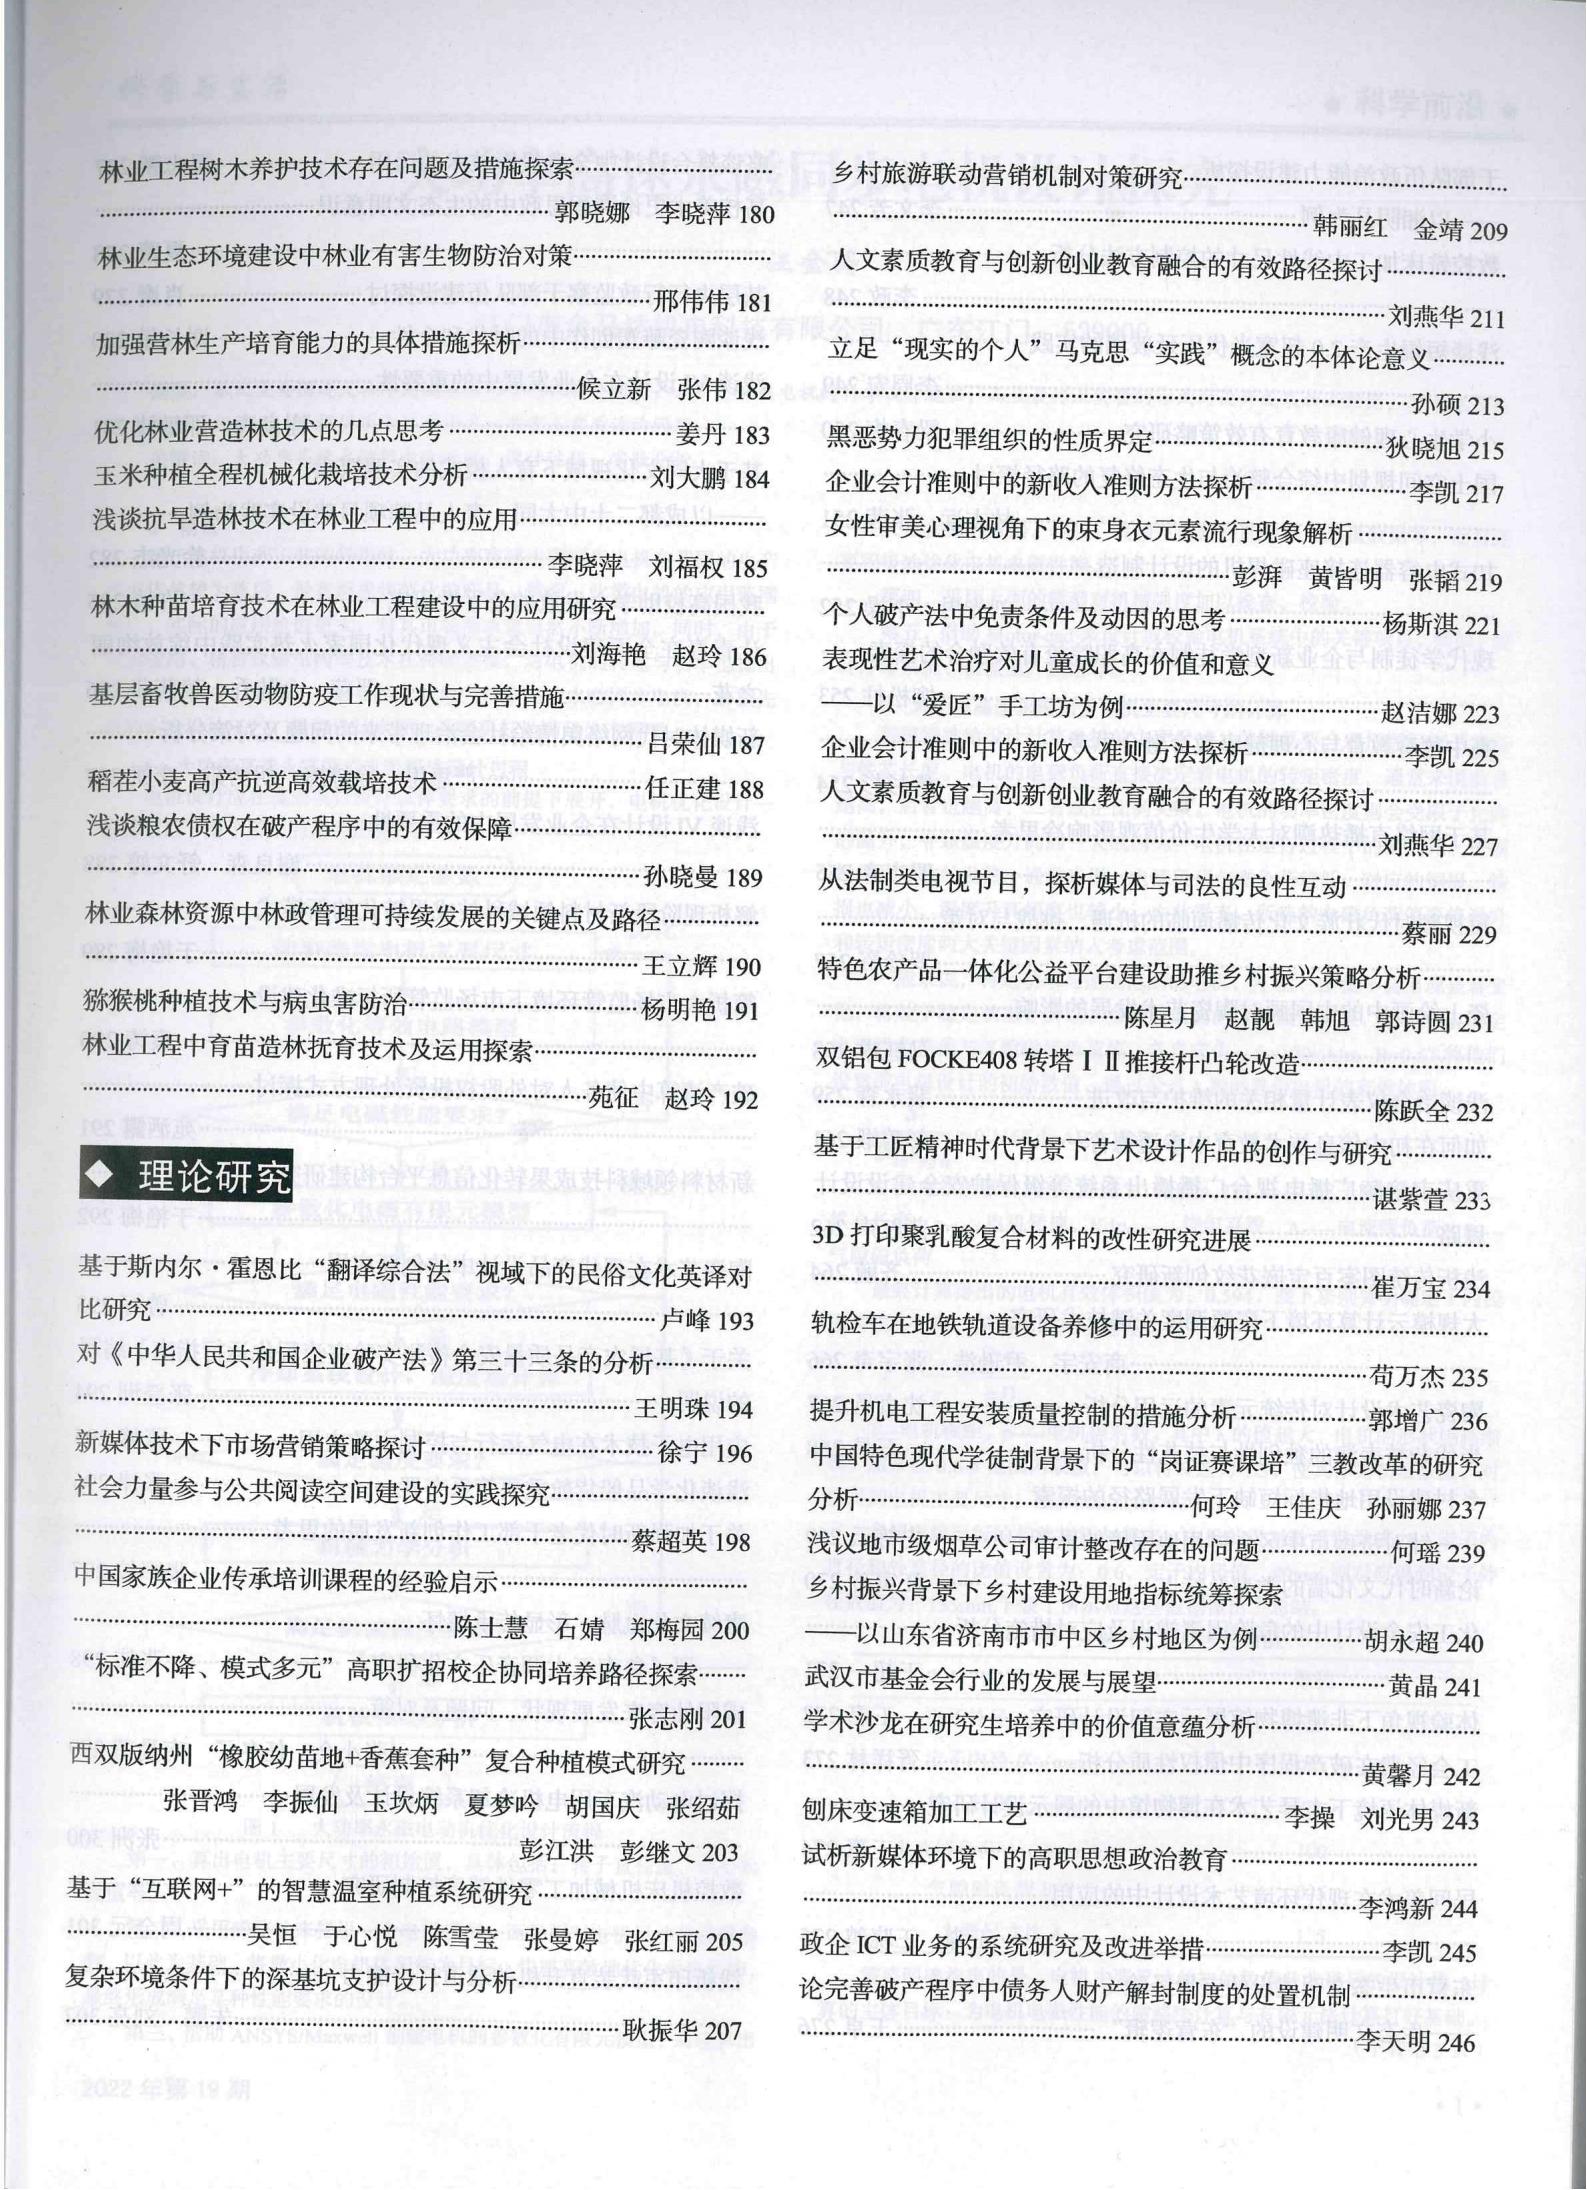 林业工程树木养护技术存在问题及措施探索……………………
……………………………………………… 郭晓娜　李晓萍 180
林业生态环境建设中林业有害生物防治对策……………………
………………………………………………………… 邢伟伟 181
加强营林生产培育能力的具体措施探析…………………………
………………………………………………… 候立新　张伟 182
优化林业营造林技术的几点思考 ……………………… 姜丹 183
玉米种植全程机械化栽培技术分析 ………………… 刘大鹏 184
浅谈抗旱造林技术在林业工程中的应用…………………………
……………………………………………… 李晓萍　刘福权 185
林木种苗培育技术在林业工程建设中的应用研究 ………………
………………………………………………… 刘海艳　赵玲 186
基层畜牧兽医动物防疫工作现状与完善措施……………………
………………………………………………………… 吕荣仙 187
稻茬小麦高产抗逆高效载培技术 …………………… 任正建 188
浅谈粮农债权在破产程序中的有效保障…………………………
………………………………………………………… 孙晓曼 189
林业森林资源中林政管理可持续发展的关键点及路径…………
………………………………………………………… 王立辉 190
猕猴桃种植技术与病虫害防治 ……………………… 杨明艳 191
林业工程中育苗造林抚育技术及运用探索………………………
…………………………………………………… 苑征　赵玲 192
◆ 理论研究
基于斯内尔·霍恩比“翻译综合法”视域下的民俗文化英译对
比研究 …………………………………………………… 卢峰 193
对《中华人民共和国企业破产法》第三十三条的分析…………
………………………………………………………… 王明珠 194
新媒体技术下市场营销策略探讨 ……………………… 徐宁 196
社会力量参与公共阅读空间建设的实践探究……………………
………………………………………………………… 蔡超英 198
中国家族企业传承培训课程的经验启示…………………………
……………………………………… 陈士慧　石婧　郑梅园 200
“标准不降、模式多元”高职扩招校企协同培养路径探索………
………………………………………………………… 张志刚 201
西双版纳州“橡胶幼苗地+香蕉套种”复合种植模式研究 ………
张晋鸿　李振仙　玉坎炳　夏梦吟　胡国庆　张绍茹
彭江洪　彭继文 203
基于“互联网+”的智慧温室种植系统研究 ……………………
………………… 吴恒　于心悦　陈雪莹　张曼婷　张红丽 205
复杂环境条件下的深基坑支护设计与分析………………………
………………………………………………………… 耿振华 207
乡村旅游联动营销机制对策研究…………………………………
………………………………………………… 韩丽红　金靖 209
人文素质教育与创新创业教育融合的有效路径探讨 ……………
………………………………………………………… 刘燕华 211
立足“现实的个人”马克思“实践”概念的本体论意义…………
…………………………………………………………… 孙硕 213
黑恶势力犯罪组织的性质界定 ……………………… 狄晓旭 215
企业会计准则中的新收入准则方法探析 ……………… 李凯 217
女性审美心理视角下的束身衣元素流行现象解析 ………………
………………………………………… 彭湃　黄皆明　张韬 219
个人破产法中免责条件及动因的思考 ……………… 杨斯淇 221
表现性艺术治疗对儿童成长的价值和意义
——以“爱匠”手工坊为例 ………………………… 赵洁娜 223
企业会计准则中的新收入准则方法探析 ……………… 李凯 225
人文素质教育与创新创业教育融合的有效路径探讨 ……………
………………………………………………………… 刘燕华 227
从法制类电视节目，探析媒体与司法的良性互动 ………………
…………………………………………………………… 蔡丽 229
特色农产品一体化公益平台建设助推乡村振兴策略分析…………
……………………………… 陈星月　赵靓　韩旭　郭诗圆 231
双铝包 FOCKE408 转塔Ⅰ Ⅱ推接杆凸轮改造 ……………………
………………………………………………………… 陈跃全 232
基于工匠精神时代背景下艺术设计作品的创作与研究…………
………………………………………………………… 谌紫萱 233
3D 打印聚乳酸复合材料的改性研究进展 ………………………
………………………………………………………… 崔万宝 234
轨检车在地铁轨道设备养修中的运用研究………………………
………………………………………………………… 苟万杰 235
提升机电工程安装质量控制的措施分析 …………… 郭增广 236
中国特色现代学徒制背景下的“岗证赛课培”三教改革的研究
分析 ………………………………… 何玲　王佳庆　孙丽娜 237
浅议地市级烟草公司审计整改存在的问题 …………… 何瑶 239
乡村振兴背景下乡村建设用地指标统筹探索
——以山东省济南市市中区乡村地区为例 ………… 胡永超 240
武汉市基金会行业的发展与展望 ……………………… 黄晶 241
学术沙龙在研究生培养中的价值意蕴分析………………………
………………………………………………………… 黄馨月 242
刨床变速箱加工工艺 ………………………… 李操　刘光男 243
试析新媒体环境下的高职思想政治教育 …………………………
………………………………………………………… 李鸿新 244
政企 ICT 业务的系统研究及改进举措 ………………… 李凯 245
论完善破产程序中债务人财产解封制度的处置机制 ……………
………………………………………………………… 李天明 246